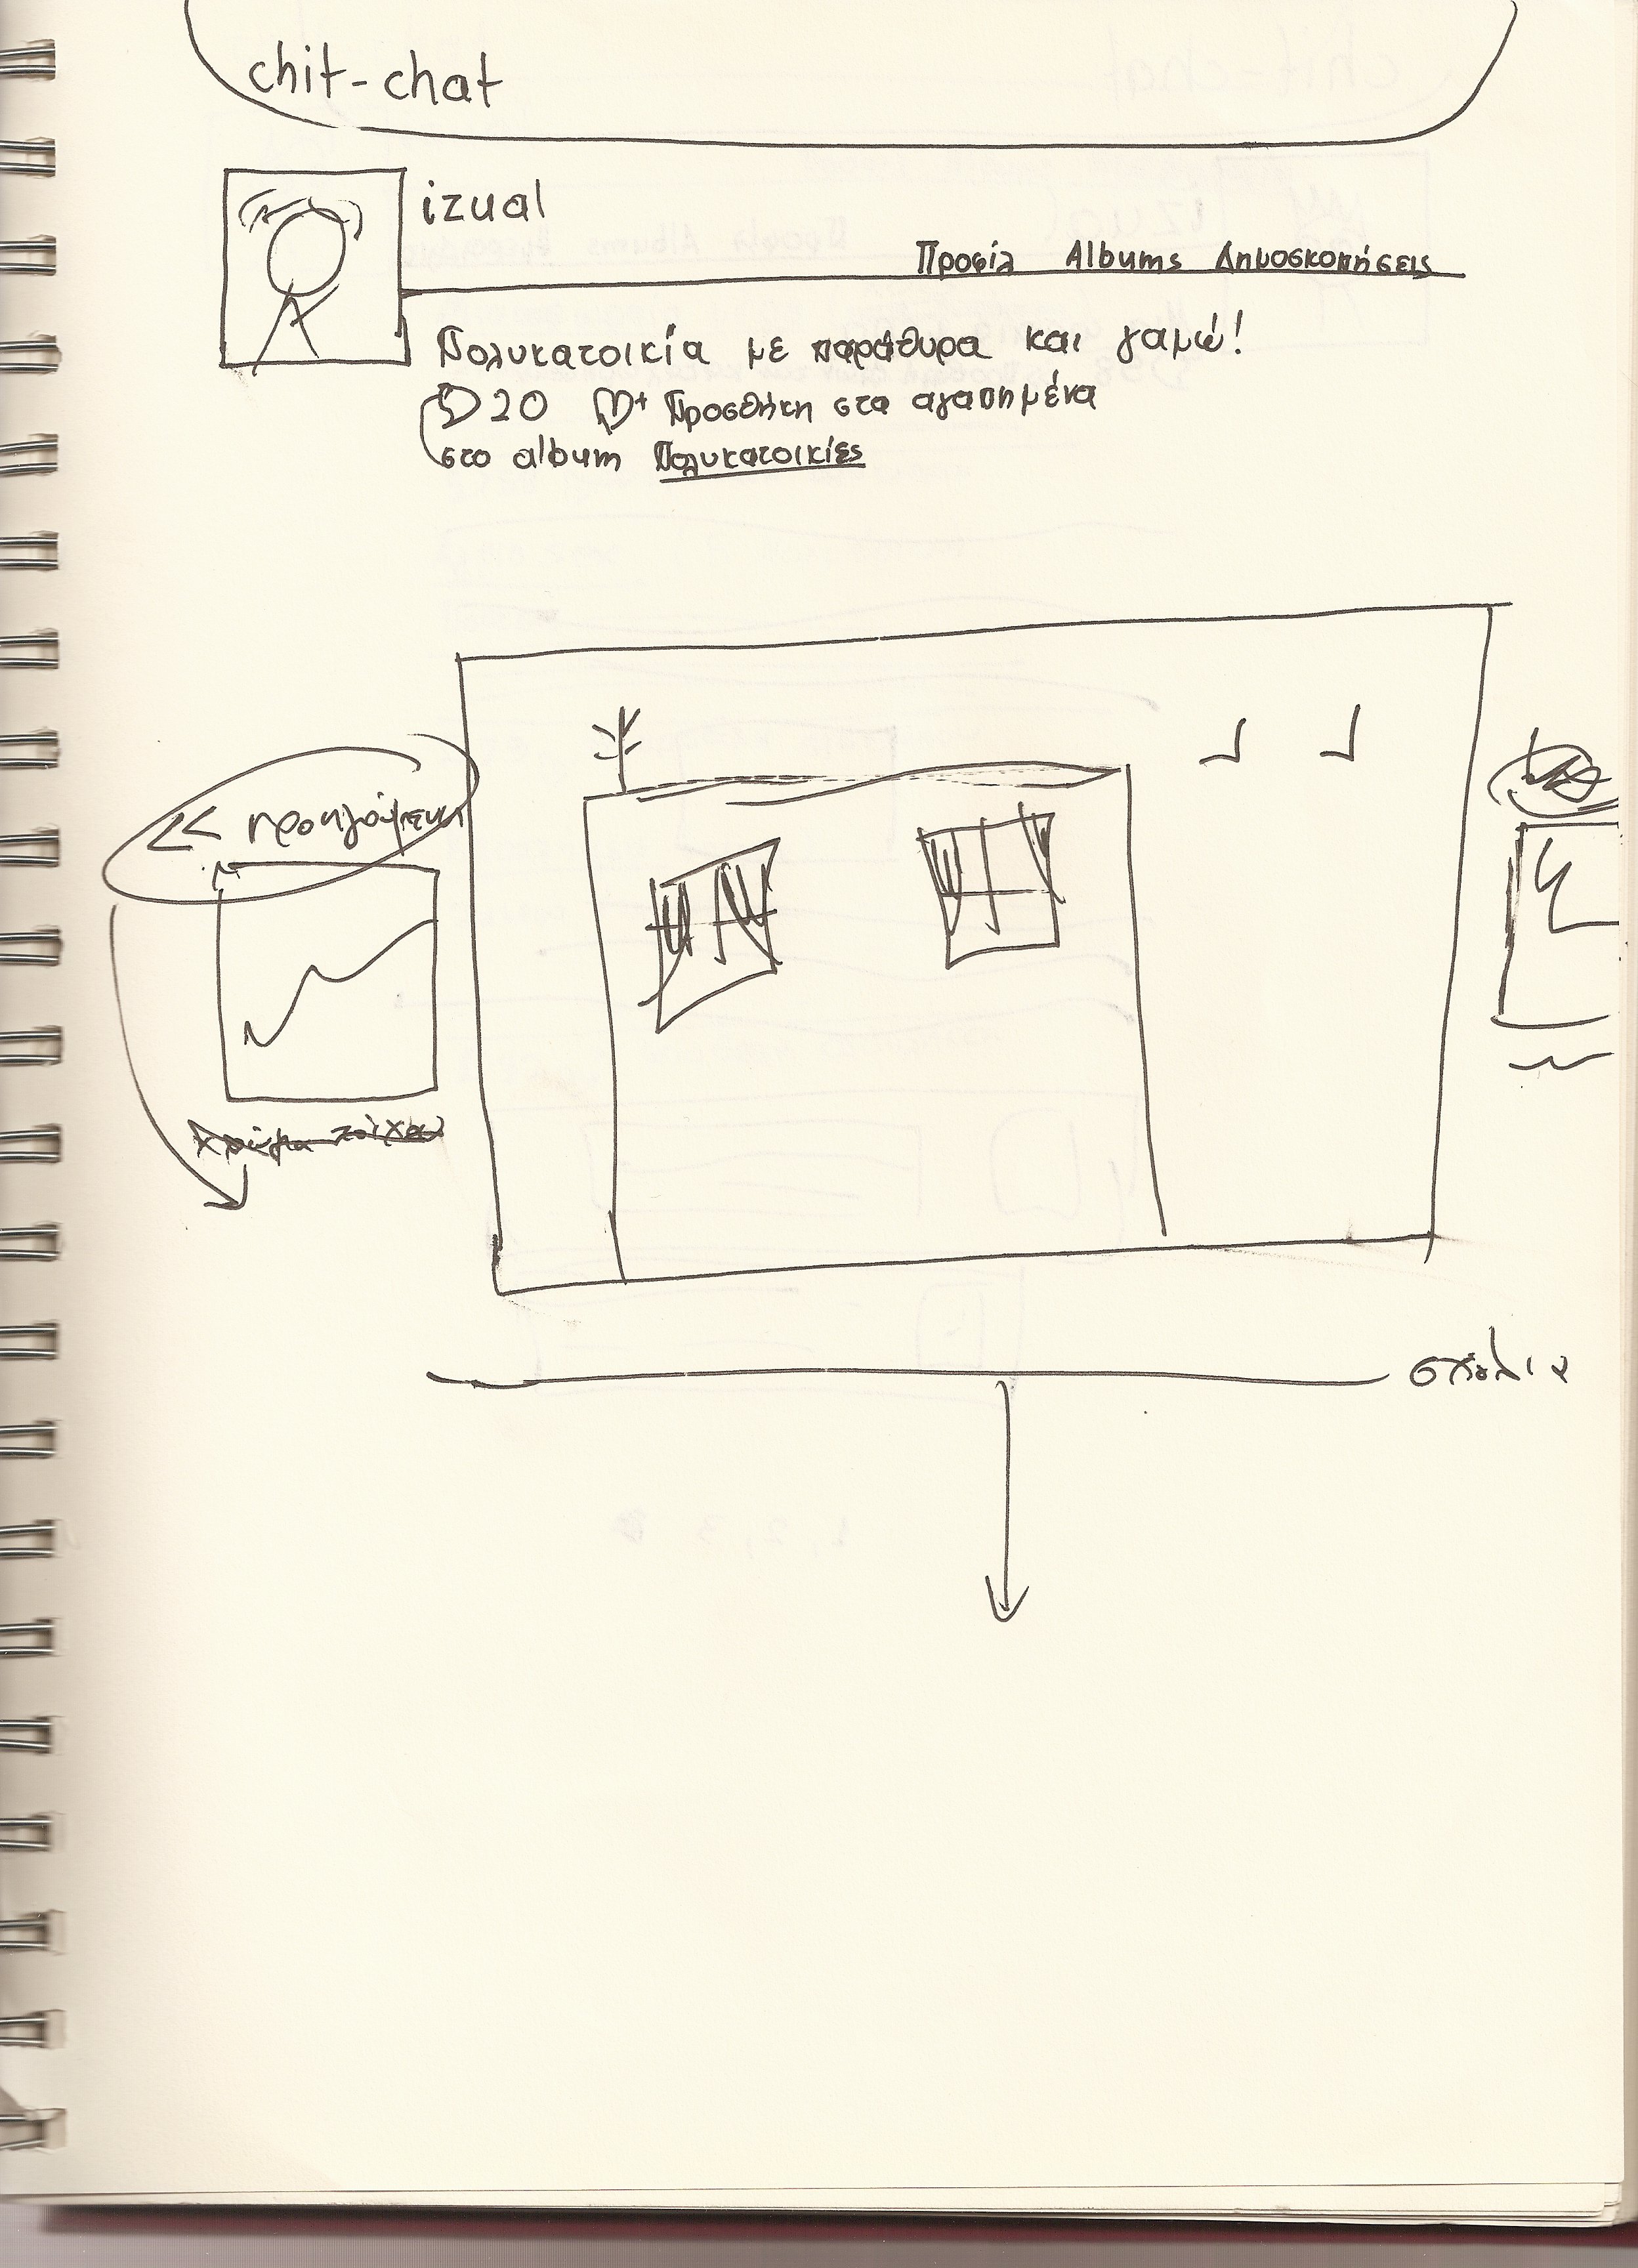 chit-chat
izual
Προφίλ Albums Δημοσκοπήσεις
Πολυκατοικία με παράθυρα και γαμώ!
20 Προσθήκη στα αγαπημένα
στο album Πολυκατοικίες
<< προηγούμενη
σχόλια